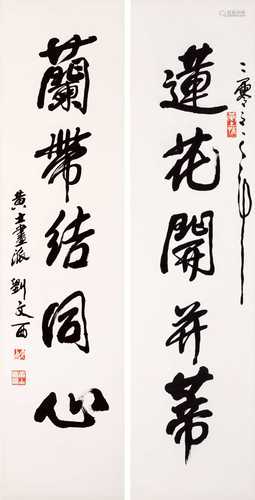 蓮花開并蒂
二零之
蘭帶結同心
黄土畫派劉文西